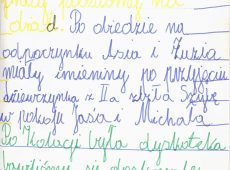 d. Po obiedzie na
odpoczynku Asia i Zuzia
miały imieniny po przyjęciu
dziewczynka z IIa zbiła szybę
w pokoju Jasia i Michała
Po kolacji była dyskoteka